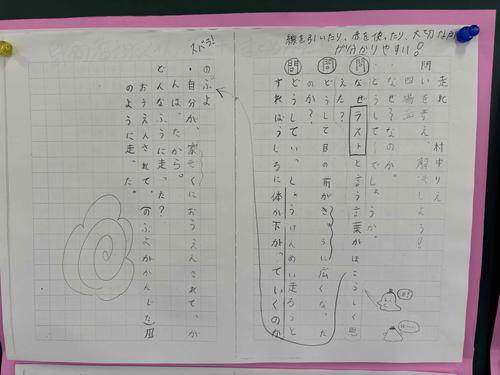 線を引いたり、太を使ったり、大切な所
が分かりやすい!
走れ　村中りえ
問いを考え、解決しよう!!
四場面
・なぜ〜なのか。
・どうして〜でしょうか。
問 なぜラストと言う言葉がはこうしく思
えた?
問 どうして目の前がきゅうに広くなった
のか?
問 どうしていっしょうけんめい走ろうと
すればうしろに体が下がっていくのか
スバラ!
のぶよ
・自分が、家ぞくにおうえんされて、が
んば、たから。
どんなふうに走った?
おうえんされて、(のぶよがかんじた)風
のように走った。